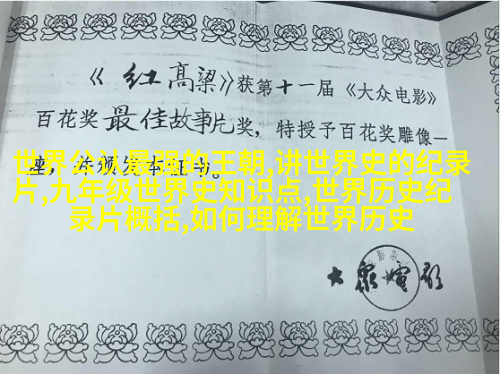 《红高粱》获第十一届《大众电影》
百花奖最佳故事片奖，特授予百花奖雕像一
座，并颁发本证书。
世界公认最强的王朝,讲世界史的纪录
片,九年级世界史知识点,世界历史纪
录片概括,如何理解世界历史
大眾電影